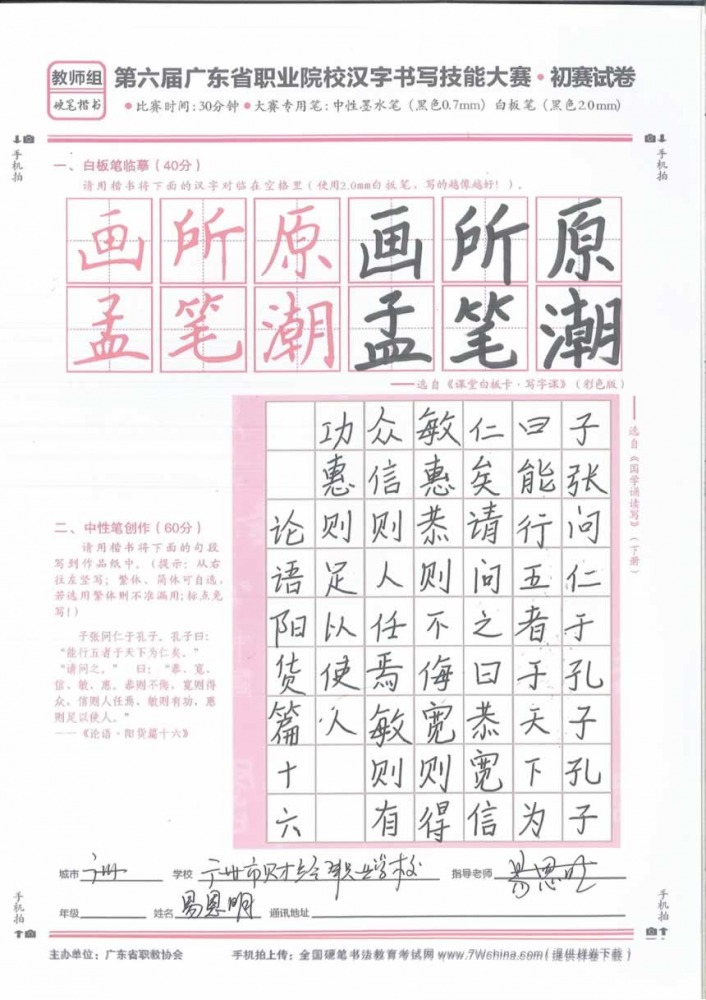 教师组
硬笔楷书
第六届广东省职业院校汉字书写技能大赛·初赛试卷
●比赛时间:30分钟●大赛专用笔:中性墨水笔(黑色0.7mm) 白板笔(黑色2.0mm)
手机拍
手机拍
一、白板笔临摹(40分)
请用楷书将下面的汉字对临在空格里(使用2.0mm白板笔,写的越像越好!)。
画所原画所原
孟笔潮孟笔潮
——选自《课堂白板卡·写字课》(彩色版)
——选自《国学诵读写》(下册)
子张问仁于孔子孔子
曰能行五者于天下为
仁矣请问之曰恭宽信
敏惠恭则不侮宽则得
众信则人任焉敏则有
功惠则足以使人
论语阳货篇十六
二、中性笔创作(60分)
请用楷书将下面的句段
写到作品纸中。(提示:从右
往左竖写;繁体、简体可自选,
若选用繁体则不准漏用;标点免
写!)
子张问仁于孔子。孔子曰:
“能行五者于天下为仁矣。”
“请问之。” 曰:“恭、宽、
信、敏、惠。恭则不侮,宽则得
众,信则人任焉,敏则有功,惠
则足以使人。”
——《论语·阳货篇十六》
城市 广州 学校 广州市财经职业学校 指导老师 易恩明
年级 姓名 易恩明 通讯地址
手机拍
手机拍
主办单位:广东省职教协会 手机拍上传:全国硬笔书法教育考试网 www.7Wchina.com(提供样卷下载)